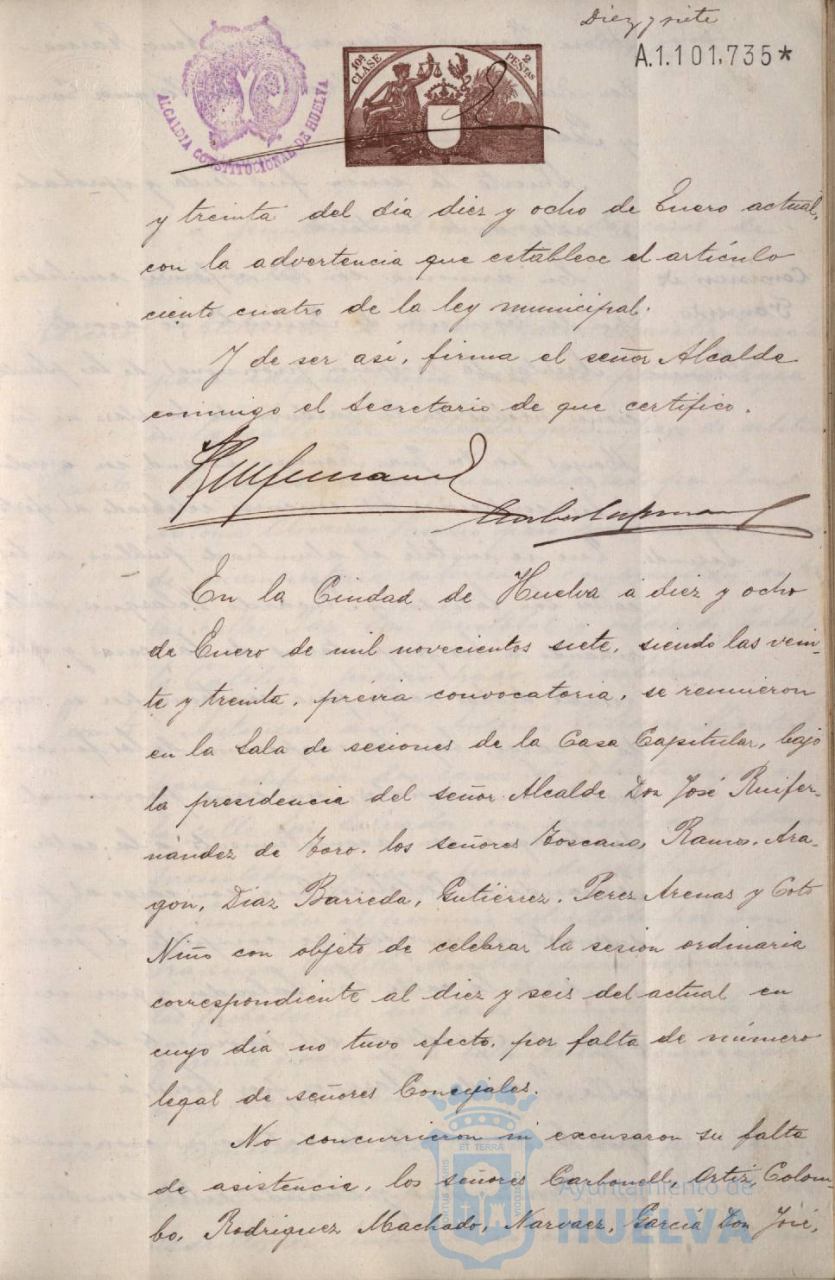 Diez y siete
A.1.101,735*
ALCALDIA CONSTITUCIONAL DE HUELVA
10ª CLASE
2 PESETAS
y treinta del día diez y ocho de Enero actual,
con la advertencia que establece el artículo
ciento cuatro de la ley municipal.
Y de ser así, firma el señor Alcalde
conmigo el Secretario de que certifico.
En la Ciudad de Huelva a diez y ocho
de Enero de mil novecientos siete, siendo las vein-
te y treinta, prévia convocatoria, se reunieron
en la Sala de sesiones de la Casa Capitular, bajo
la presidencia del señor Alcalde Don José Ruifer-
nández de Toro, los señores Toscano, Ramos, Ara-
gon, Diaz Barreda, Gutiérrez, Perez Arenas y Coto
Niño con objeto de celebrar la sesion ordinaria
correspondiente al diez y seis del actual en
cuyo día no tuvo efecto, por falta de número
legal de señores Concejales.
No concurrieron ni excusaron su falta
de asistencia, los señores Carbonell, Ortiz, Colom-
bo, Rodriguez Machado, Narvaez, Garcia Don José,
ET TERRÆ
Ayuntamiento de
HUELVA